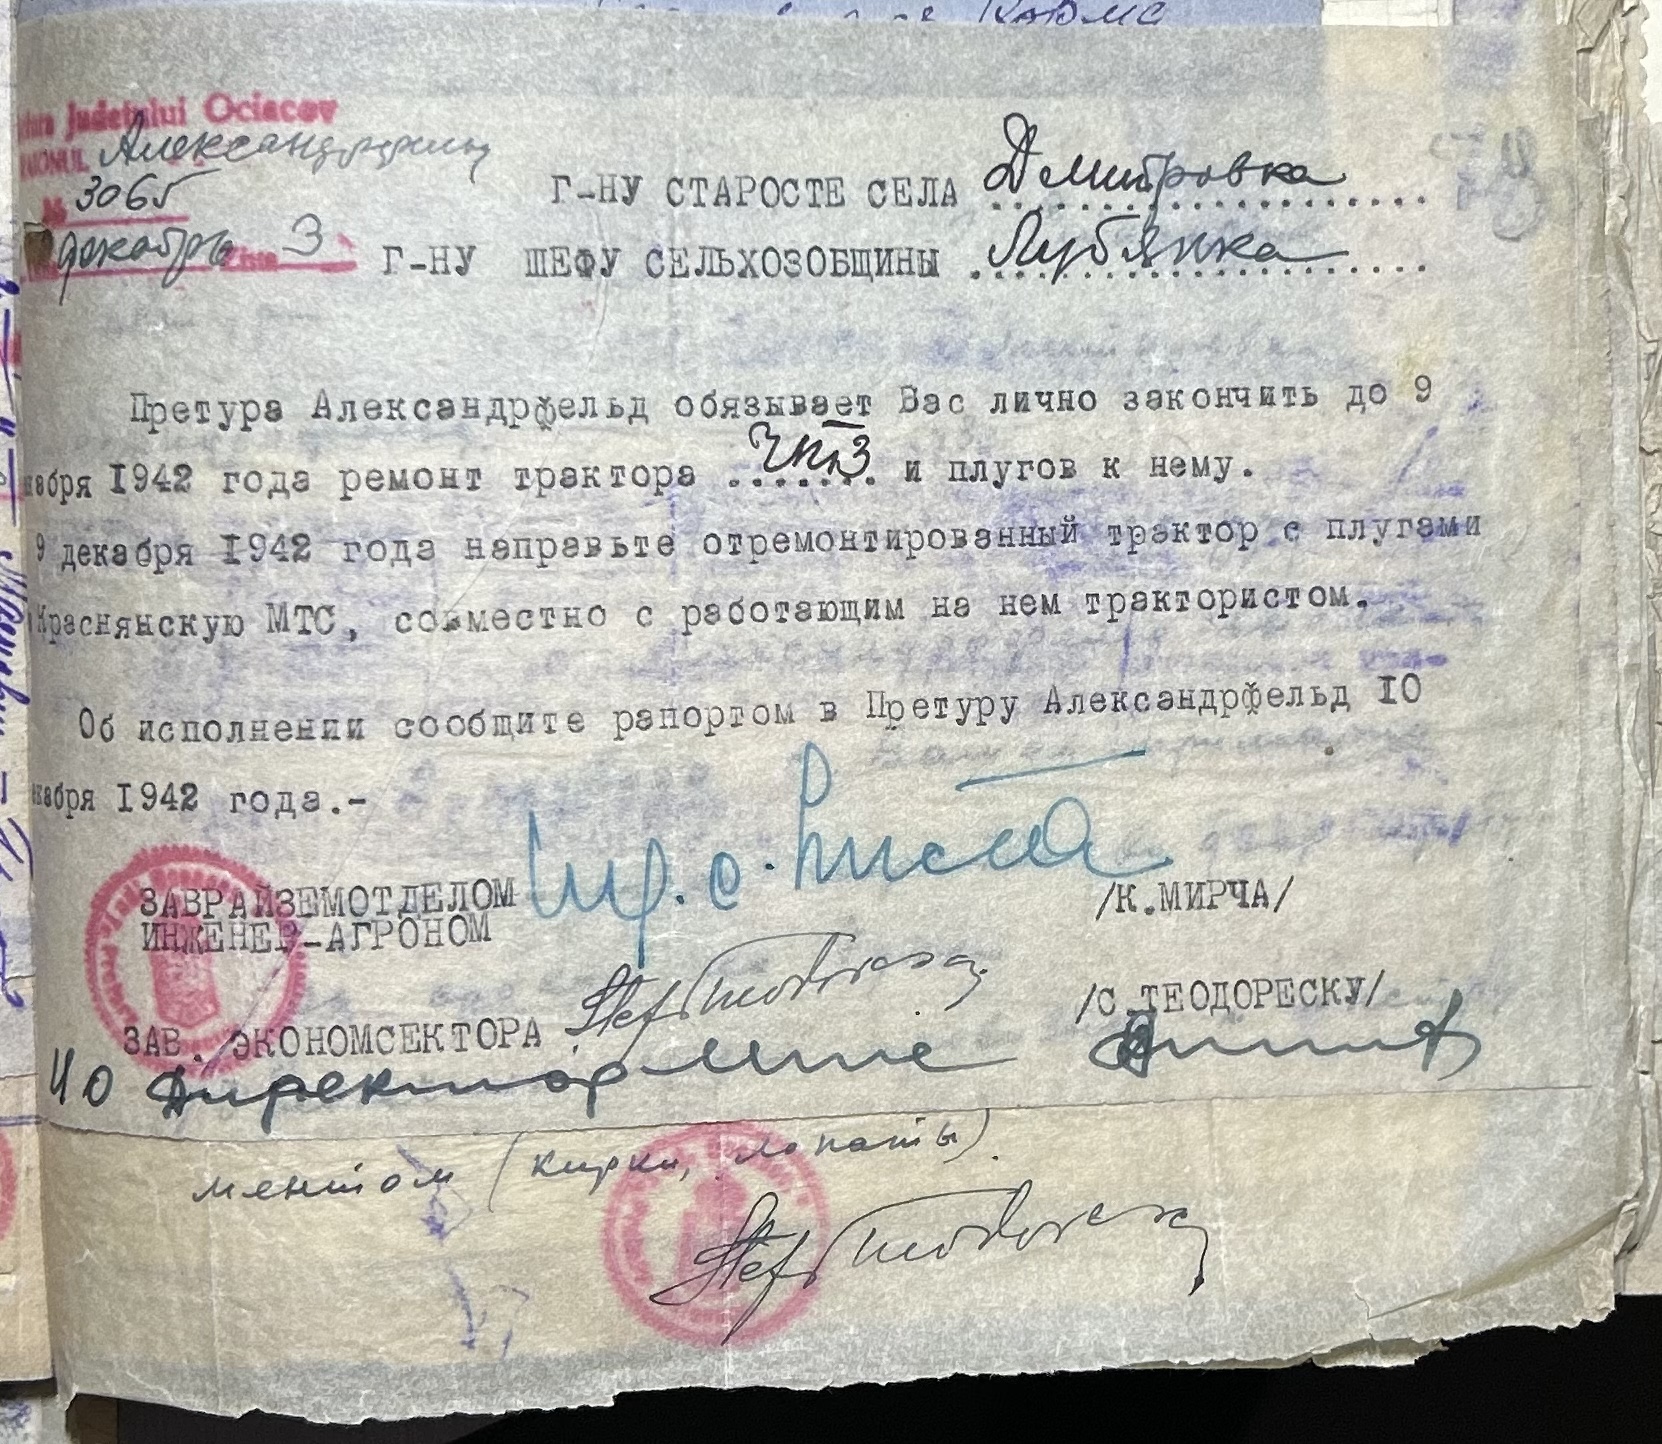 Judetului Ociacov
Александрфельд
№ 3065
декабрь 3
Г-НУ СТАРОСТЕ СЕЛА Дмитровка
Г-НУ ШЕФУ СЕЛЬХОЗОБЩИНЫ Лубянка
Претура Александрфельд обязывает Вас лично закончить до 9
кабря 1942 года ремонт трактора ЧТЗ и плугов к нему.
9 декабря 1942 года направьте отремонтированный трактор с плугами
Краснянскую МТС, совместно с работающим на нем трактористом.
Об исполнении сообщите рапортом в Претуру Александрфельд 10
кабря 1942 года.-
ЗАВРАЙЗЕМОТДЕЛОМ
ИНЖЕНЕР-АГРОНОМ /К.МИРЧА/
ЗАВ. ЭКОНОМСЕКТОРА /С.ТЕОДОРЕСКУ/
ИО Директор
ментом (кирки, лопаты).